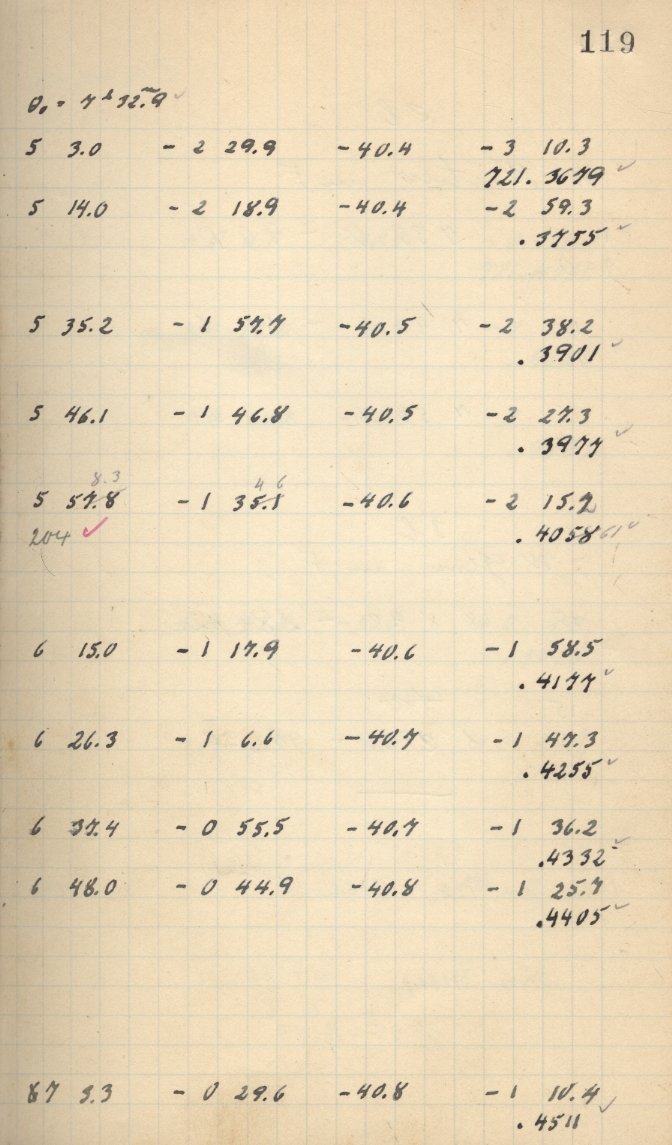 119
θ₀ = 7ʰ 32.ᵐ9 ✓
5 3.0 - 2 29.9 - 40.4 - 3 10.3
721.3679 ✓
5 14.0 - 2 18.9 - 40.4 - 2 59.3
.3755 ✓
5 35.2 - 1 57.7 - 40.5 - 2 38.2
.3901 ✓
5 46.1 - 1 46.8 - 40.5 - 2 27.3
.3977 ✓
8.3 4 6
5 57.8 - 1 35.1 - 40.6 - 2 15.7
204 ✓ .4058 61 ✓
6 15.0 - 1 17.9 - 40.6 - 1 58.5
.4177 ✓
6 26.3 - 1 6.6 - 40.7 - 1 47.3
.4255 ✓
6 37.4 - 0 55.5 - 40.7 - 1 36.2
.4332 ✓
6 48.0 - 0 44.9 - 40.8 - 1 25.7
.4405 ✓
7 3.3 - 0 29.6 - 40.8 - 1 10.4
.4511 ✓